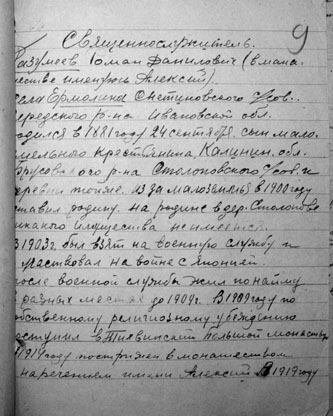 9
Священнослужитель.
Разумеев Роман Данилович (в мона
шестве именуюсь Алексей).
села Ермолина Снетиновского с/сов.
Середского р-на Ивановской обл.
родился в 1881 году / 24 сентября, сын мало
земельного крестьянина Калинин. обл.
р-на Столоповского с/сов. и
деревни тоже. Из за малоземелья в 1900 году
оставил родину. на родине в дер. Столопове
никакого имущества не имеется.
В 1903 г. был взят на военную службу и
участвовал на войне с Японией.
после военной службы жил по найму
в разных местах до 1909 г. В 1909 году по
собственному религиозному убеждению
поступил в Тихвинский большой монастырь
в 1914 году пострижен в монашеством
с наречением имени Алексей. В 1919 году